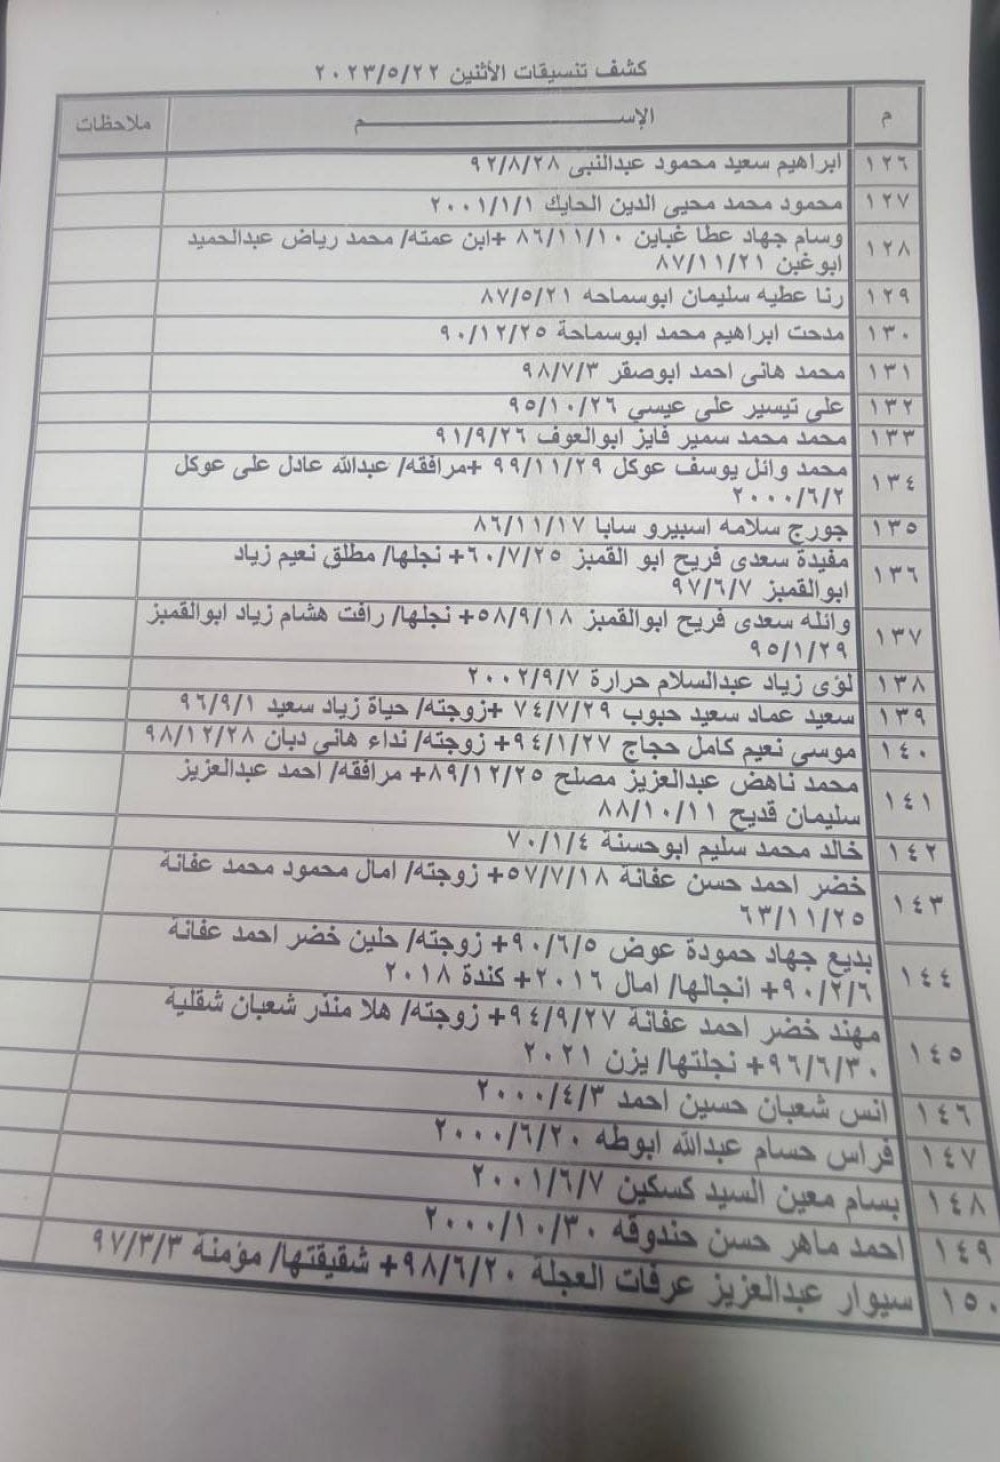 كشف تنسيقات الأثنين ٢٠٢٣/٥/٢٢
م الإســــــــــــم ملاحظات
١٢٦ ابراهيم سعيد محمود عبدالنبى ٩٢/٨/٢٨
١٢٧ محمود محمد محيى الدين الحايك ٢٠٠١/١/١
١٢٨ وسام جهاد عطا غباين ٨٦/١١/١٠ +ابن عمته/ محمد رياض عبدالحميد
ابوغبن ٨٧/١١/٢١
١٢٩ رنا عطيه سليمان ابوسماحه ٨٧/٥/٢١
١٣٠ مدحت ابراهيم محمد ابوسماحة ٩٠/١٢/٢٥
١٣١ محمد هانى احمد ابوصقر ٩٨/٧/٣
١٣٢ على تيسير على عيسي ٩٥/١٠/٢٦
١٣٣ محمد محمد سمير فايز ابوالعوف ٩١/٩/٢٦
١٣٤ محمد وائل يوسف عوكل ٩٩/١١/٢٩ +مرافقه/ عبدالله عادل على عوكل
٢٠٠٠/٦/٢
١٣٥ جورج سلامه اسبيرو سابا ٨٦/١١/١٧
١٣٦ مفيدة سعدى فريح ابو القمبز ٦٠/٧/٢٥+ نجلها/ مطلق نعيم زياد
ابوالقمبز ٩٧/٦/٧
١٣٧ وائله سعدى فريح ابوالقمبز ٥٨/٩/١٨+ نجلها/ رافت هشام زياد ابوالقمبز
٩٥/١/٢٩
١٣٨ لؤى زياد عبدالسلام حرارة ٢٠٠٢/٩/٧
١٣٩ سعيد عماد سعيد حبوب ٧٤/٧/٢٩ +زوجته/ حياة زياد سعيد ٩٦/٩/١
١٤٠ موسى نعيم كامل حجاج ٩٤/١/٢٧+ زوجته/ نداء هاني دبان ٩٨/١٢/٢٨
١٤١ محمد ناهض عبدالعزيز مصلح ٨٩/١٢/٢٥+ مرافقه/ احمد عبدالعزيز
سليمان قديح ٨٨/١٠/١١
١٤٢ خالد محمد سليم ابوحسنة ٧٠/١/٤
١٤٣ خضر احمد حسن عفانة ٥٧/٧/١٨+ زوجته/ امال محمود محمد عفانة
٦٣/١١/٢٥
١٤٤ بديع جهاد حمودة عوض ٩٠/٦/٥+ زوجته/ حلين خضر احمد عفانة
٩٠/٢/٦+ انجالها/ امال ٢٠١٦+ كندة ٢٠١٨
١٤٥ مهند خضر احمد عفانة ٩٤/٩/٢٧+ زوجته/ هلا منذر شعبان شقلية
٩٦/٦/٣٠+ نجلتها/ يزن ٢٠٢١
١٤٦ انس شعبان حسين احمد ٢٠٠٠/٤/٣
١٤٧ فراس حسام عبدالله ابوطه ٢٠٠٠/٦/٢٠
١٤٨ بسام معين السيد كسكين ٢٠٠١/٦/٧
١٤٩ احمد ماهر حسن حندوقه ٢٠٠٠/١٠/٣٠
١٥٠ سيوار عبدالعزيز عرفات العجلة ٩٨/٦/٢٠+ شقيقتها/ مؤمنة ٩٧/٣/٣